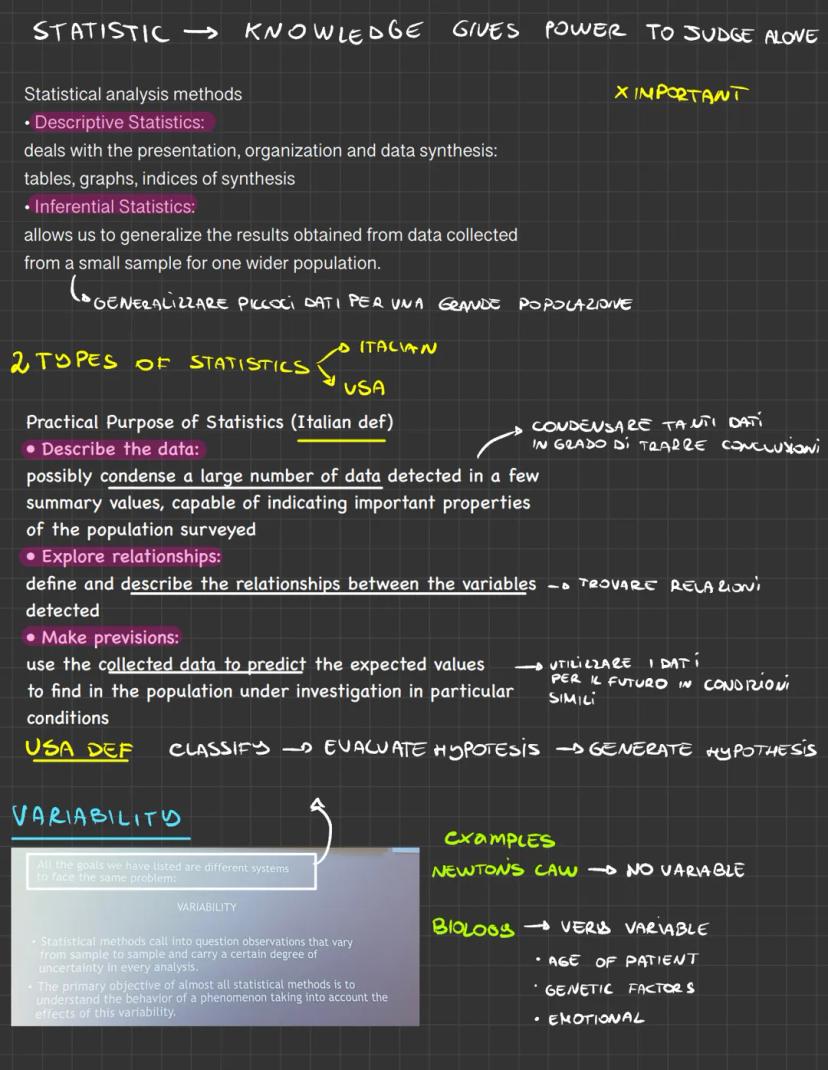 STATISTIC → KNOWLEDGE GIVES POWER TO JUDGE ALONE
Statistical analysis methods
X IMPORTANT
• Descriptive Statistics:
deals with the presentation, organization and data synthesis:
tables, graphs, indices of synthesis
• Inferential Statistics:
allows us to generalize the results obtained from data collected
from a small sample for one wider population.
GENERALIZZARE PICCOLI DATI PER UNA GRANDE POPOLAZIONE
2 TYPES OF STATISTICS
→ ITALIAN
→ USA
Practical Purpose of Statistics (Italian def)
• Describe the data:
possibly condense a large number of data detected in a few
summary values, capable of indicating important properties
of the population surveyed
→ CONDENSARE TANTI DATI
IN GRADO DI TRARRE CONCLUSIONI
• Explore relationships:
define and describe the relationships between the variables → TROVARE RELAZIONI
detected
• Make previsions:
use the collected data to predict the expected values
to find in the population under investigation in particular
conditions
→ UTILIZZARE I DATI
PER IL FUTURO IN CONDIZIONI
SIMILI
USA DEF CLASSIFY → EVALUATE HYPOTESIS → GENERATE HYPOTHESIS
VARIABILITY
All the goals we have listed are different systems
to face the same problem:
VARIABILITY
• Statistical methods call into question observations that vary
from sample to sample and carry a certain degree of
uncertainty in every analysis.
• The primary objective of almost all statistical methods is to
understand the behavior of a phenomenon taking into account the
effects of this variability.
EXAMPLES
NEWTON'S LAW → NO VARIABLE
BIOLOGY → VERY VARIABLE
• AGE OF PATIENT
• GENETIC FACTORS
• EMOTIONAL